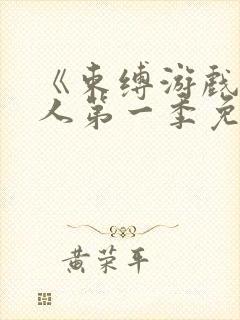 《束缚游戏
人第一季免
黄荣平